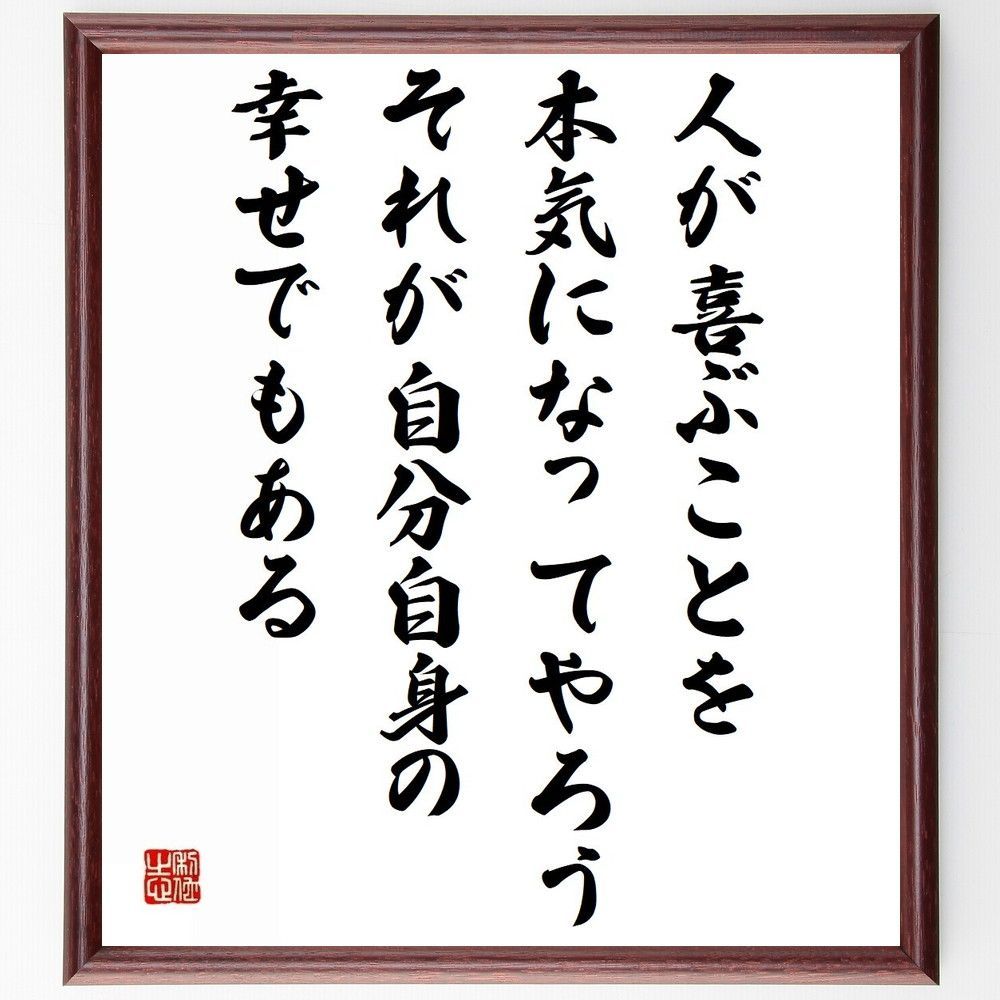 人が喜ぶことを
本気になってやろう
それが自分自身の
幸せでもある